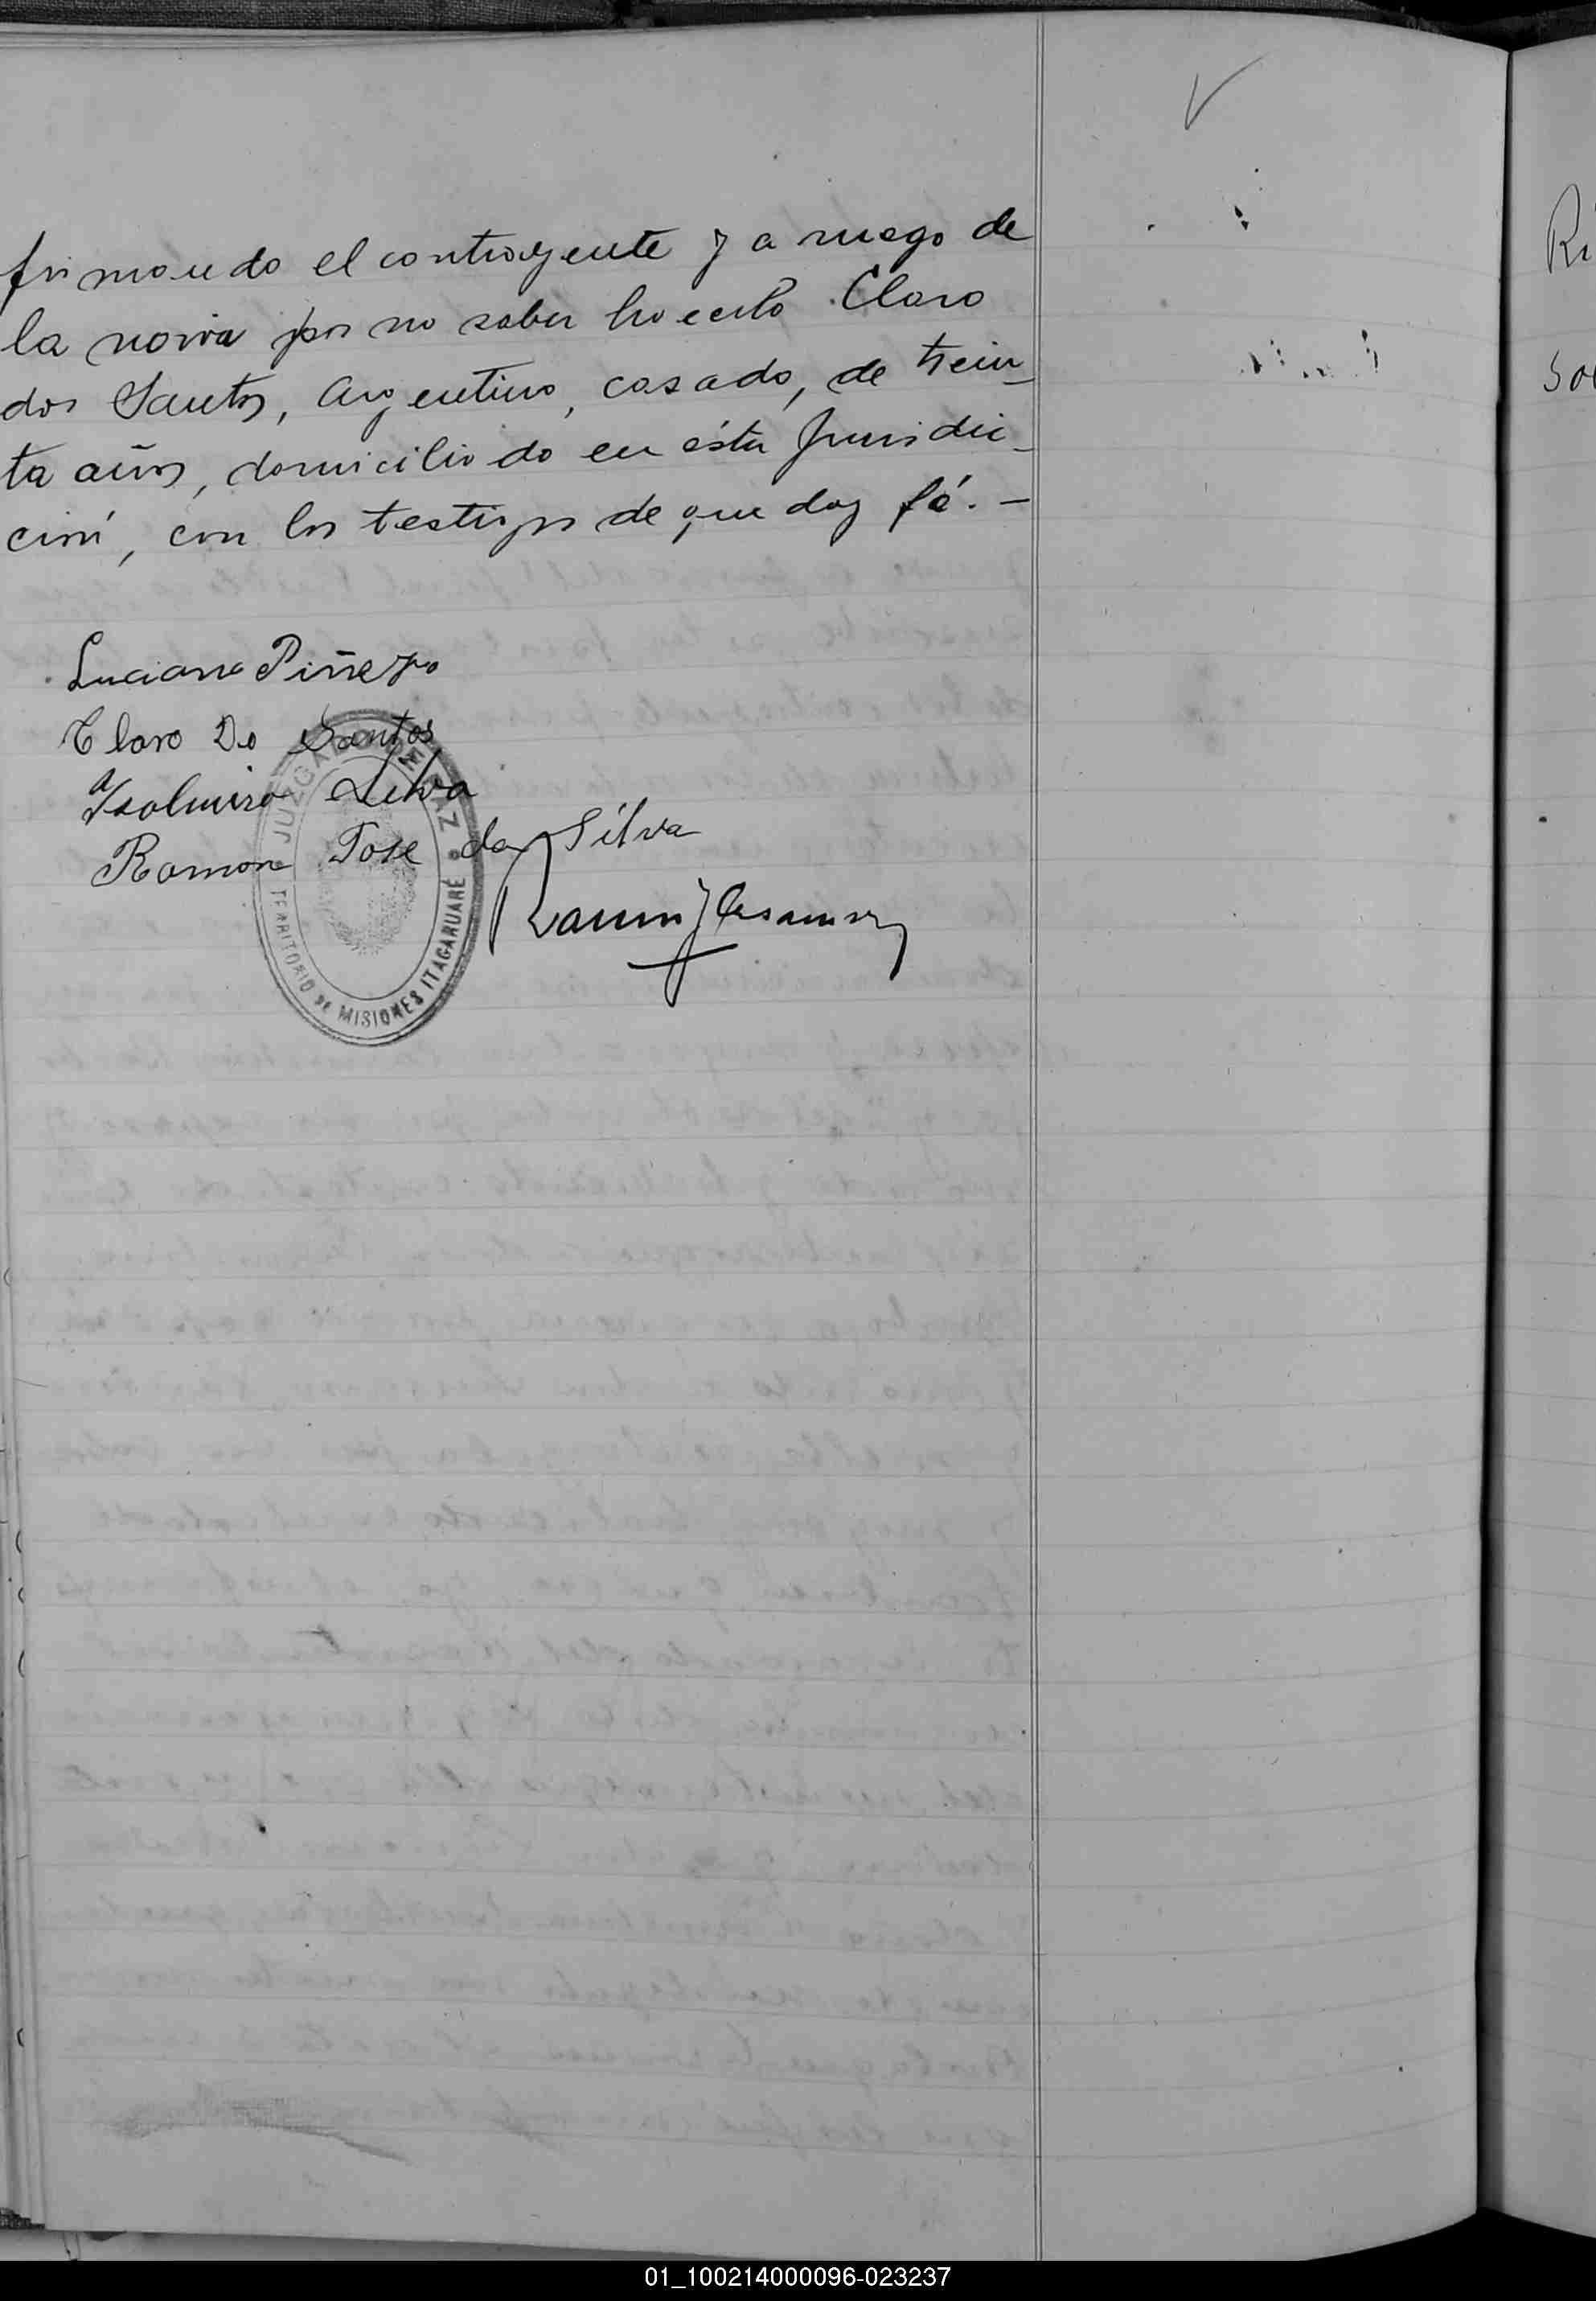 firmando el contrayente y a ruego de
la novia por no saber hacerlo Claro
dos Santos, Argentino, casado, de trein_
ta años, domiciliado en ésta Jurisdic_
ción, con los testigos de que doy fé. —
Luciano Piñeyro
Claro Do Santos
Ysolmiro Silva
Ramon Jose da Silva
Ramon J
JUZGADO DE PAZ
TERRITORIO DE MISIONES ITACARUARÉ
Ri
So
01_100214000096-023237